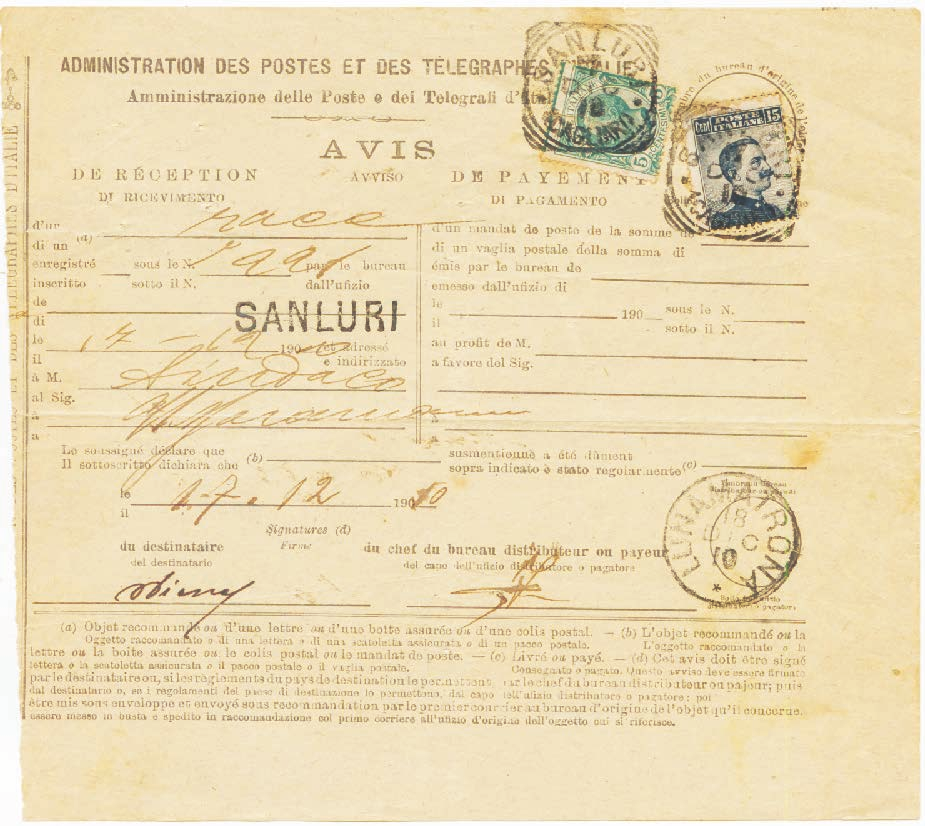 ADMINISTRATION DES POSTES ET DES TÉLÉGRAPHES D'ITALIE
Amministrazione delle Poste e dei Telegrafi d'Ital
SANLURI
10
(CAGLIARI)
5
CENTESIMI
CENT 15
POSTE ITALIANE
du bureau d'origine de l'avis
AVIS
AVVISO
DE RÉCEPTION
DI RICEVIMENTO
DE PAYEMENT
DI PAGAMENTO
d'un
di un
(a) racc
enregistré sous le N. par le bureau
inscritto sotto il N. dall'ufizio
de
di
SANLURI
le
il
17 - 12 190 et adressé
e indirizzato
à M.
al Sig.
Sindaco
à
a
d'un mandat de poste de la somme de
di un vaglia postale della somma di
émis par le bureau de
emesso dall'ufizio di
le
il
190 sous le N.
sotto il N.
au profit de M.
a favore del Sig.
à
a
Le soussigné déclare que
Il sottoscritto dichiara che (b)
susmentionné a été dûment
sopra indicato è stato regolarmente (c)
le
il
17. 12 190 10
Timbro del bureau
distributeur ou
LUNAMATRONA
18
DIC
10
Signatures (d)
Firme
du destinataire
del destinatario
du chef du bureau distributeur ou payeur
del capo dell'ufizio distributore o pagatore
(a) Objet recommandé ou d'une lettre ou d'une boite assurée ou d'une colis postal. — (b) L'objet recommandé ou la
Oggetto raccomandato o di una lettera o di una scatoletta assicurata o di un pacco postale. L'oggetto raccomandato o la
lettre ou la boite assurée ou le colis postal ou le mandat de poste. — (c) Livré ou payé. — (d) Cet avis doit être signé
lettera o la scatoletta assicurata o il pacco postale o il vaglia postale. Consegnato o pagato. Questo avviso deve essere firmato
par le destinataire ou, si les règlements du pays de destination le permettent, par le chef du bureau distributeur ou pajeur; puis
dal destinatario o, se i regolamenti del paese di destinazione lo permettono, dal capo dell'ufizio distributore o pagatore; poi
être mis sous enveloppe et envoyé sous recommandation par le premier courrier au bureau d'origine de l'objet qu'il concerne.
essere messo in busta e spedito in raccomandazione col primo corriere all'ufizio d'origine dell'oggetto cui si riferisce.